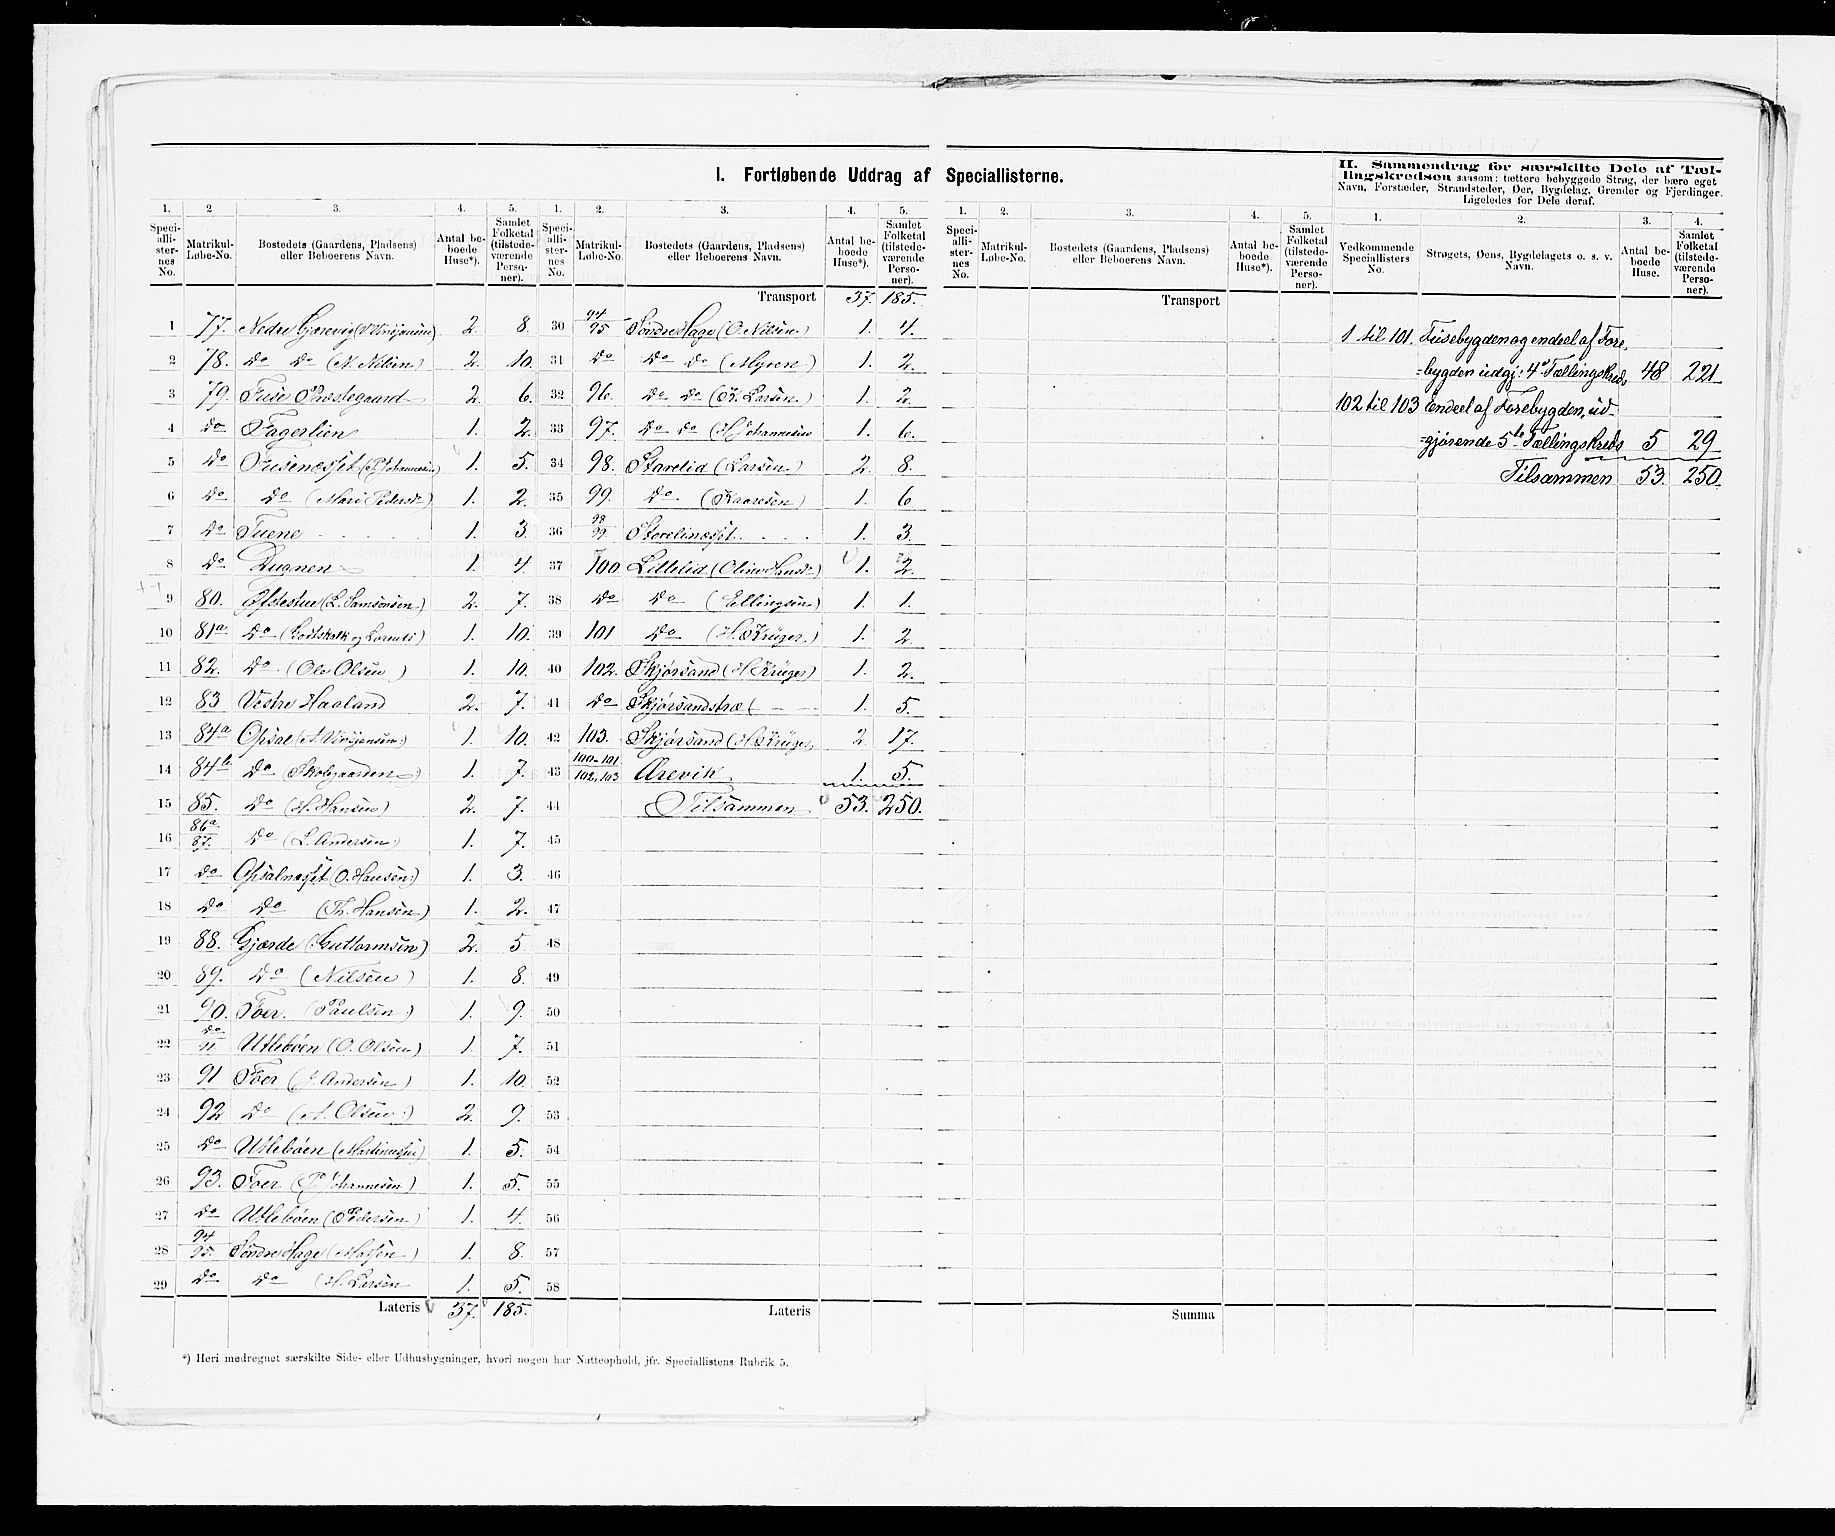 I. Fortløbende Uddrag af Speciallisterne.
II. Sammendrag for særskilte Dele af Tællingskredsen saasom: tættere bebyggede Strøg, der bære eget
Navn, Forstæder, Strandsteder, Øer, Bygdelag, Grender og Fjerdinger.
Ligeledes for Dele deraf.
1. 2. 3. 4. 5.
Speciallisternes No. Matrikul-Løbe-No. Bostedets (Gaardens, Pladsens) eller Beboerens Navn. Antal beboede Huse*). Samlet Folketal (tilstedeværende Personer).
1 77. Nedre Gjærevig 2. 8.
2 78. Do Do (N. Nilsen) 2. 10.
3 79. Fuse Præstegaard 2. 6.
4 do Fagerlien 1. 2.
5 do Fusenæsset (P. Johannesen) 1. 5.
6 do do (Mari Pedersd.) 1. 2.
7 Do Tuene 1. 3.
8 do Dugnen 1. 4.
9 80. Øfstestue (L. Samsonsen) 2. 7.
10 81a Do (Godtskalk og Larents) 1. 10.
11 82. Do (Ole Olsen) 1. 10.
12 83 Vestre Haaland 2. 7.
13 84a Opsal 1. 10.
14 84b do (Skolegaarden) 1. 7.
15 85. Do (H. Hansen) 2. 7.
16 86a 87. Do (L. Andersen) 1. 7.
17 do Opsalnæsset (O. Hansen) 1. 3.
18 do do (Th. Hansen) 1. 2.
19 88. Gjærde (Guttormsen) 2. 5
20 89. Do (Nilsen) 1. 8.
21 90. Foer. (Paulsen) 1. 9.
22 do 11 Utlebøen (O. Olsen) 1. 7.
23 91 Foer (J. Andersen) 1. 10.
24 92 Do (A. Olsen) 2. 9.
25 Do Utlebøen (Martinussen) 1. 5.
26 93. Foer (P. Johannesen) 1. 5.
27 do Utlebøen (Pedersen) 1. 4.
28 94 95. Søndre Hage (Matsen) 1. 8.
29 do do (H. Larsen 1. 5.
Lateris 37. 185.
*) Heri medregnet særskilte Side- eller Udhusbygninger, hvori nogen har Natteophold, jfr. Speciallistens Rubrik 5.
1. 2. 3. 4. 5.
Speciallisternes No. Matrikul-Løbe-No. Bostedets (Gaardens, Pladsens) eller Beboerens Navn. Antal beboede Huse*). Samlet Folketal (tilstedeværende Personer).
Transport 37. 185.
30 94 95 Søndre Hage (O. Nilsen) 1. 4.
31 do do do (Myren) 1. 2.
32 96. do do (K. Larsen) 1. 2.
33 97. do do (H. Johannesen 1. 6.
34 98. Storelid (Larsen) 2. 8.
35 99. do. (Kaaresen) 1. 6
36 98 99 Storelinæsset 1. 3.
37 100 Lillelid (Oline Hansd.) 1. 2.
38 do do (Ellingsen) 1. 1.
39 101 do (H. Krüger) 1. 2
40 102. Skjørsand (H Krüger) 1. 2.
41 do Skjørsandstræ ( 1. 5.
42 103. Skjørsand (H Krüger 2 17.
43 100-101 102, 103 Ærevik 1. 5.
44 Tilsammen 53. 250.
45
46
47
48
49
50
51
52
53
54
55
56
57
58
Lateris
1. 2. 3. 4. 5.
Speciallisternes No. Matrikul-Løbe-No. Bostedets (Gaardens, Pladsens) eller Beboerens Navn. Antal beboede Huse*). Samlet Folketal (tilstedeværende Personer).
Transport
Summa
1. 2. 3. 4.
Vedkommende Speciallisters No. Strøgets, Øens, Bygdelagets o. s. v. Navn. Antal beboede Huse. Samlet Folketal (tilstedeværende Personer).
1 til 101. Fusebygden og endeel af Fore
=bygden udgj: 4de Tællingskreds 48 221
102 til 103 Endeel af Forebygden, ud-
=gjørende 5te Tællingskreds 5 29
Tilsammen 53. 250.